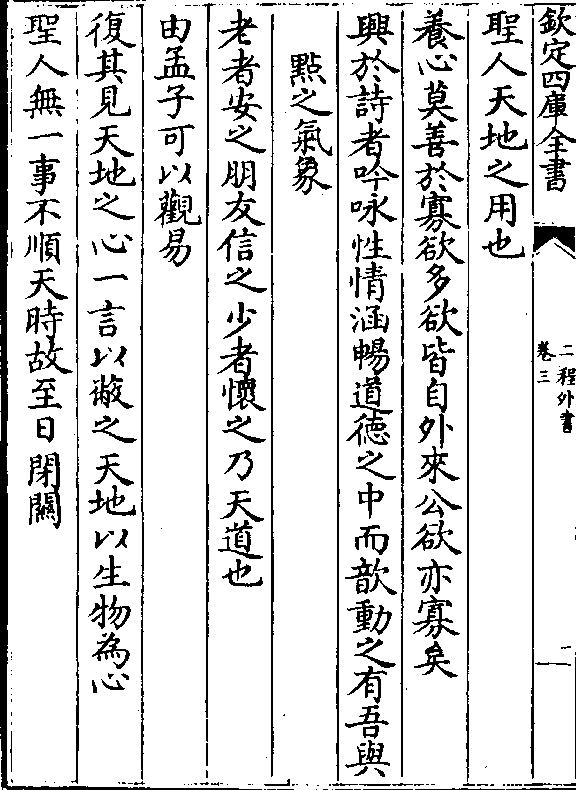 欽定四庫全書
二程外書
卷三
二
聖人天地之用也
養心莫善於寡欲多欲皆自外來公欲亦寡矣
興於詩者吟咏性情涵暢道德之中而歆動之有吾與
點之氣象
老者安之朋友信之少者懷之乃天道也
由孟子可以觀易
復其見天地之心一言以蔽之天地以生物為心
聖人無一事不順天時故至日閉關